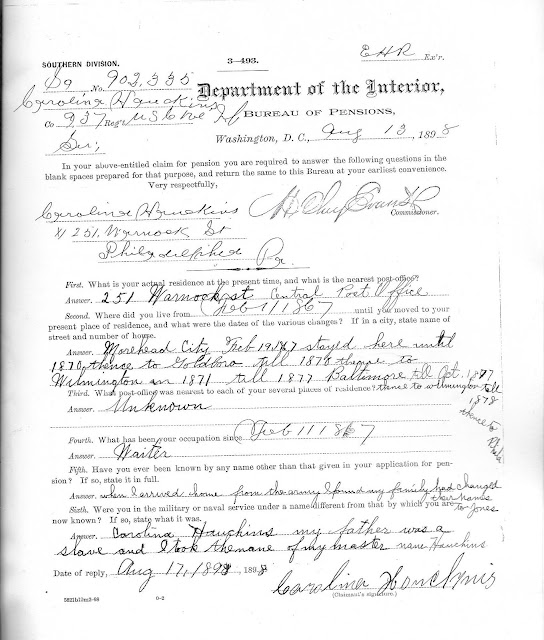 EHR Ex'r.
SOUTHERN DIVISION.
3—493.
No. 902,335
Department of the Interior,
Carolina Hauckins
Co G, 37 Reg't US Col
BUREAU OF PENSIONS,
Washington, D. C., Aug 13, 1898
Sir;
In your above-entitled claim for pension you are required to answer the following questions in the
blank spaces prepared for that purpose, and return the same to this Bureau at your earliest convenience.
Very respectfully,
Carolina Hauckins
H Clay Evans
Commissioner.
251, Warnock St
Philadelphia
Pa.
First. What is your actual residence at the present time, and what is the nearest post-office?
Answer. 251 Warnock st Central Post Office
Second. Where did you live from Feb 11 1867 until you moved to your
present place of residence, and what were the dates of the various changes? If in a city, state name of
street and number of home.
Answer. Morehead City Feb stayd here until
1870, thence to Goldboro till thence to
Wilmington in 1871 till 1877 Baltimore till Oct. 1877
Third. What post-office was nearest to each of your several places of residence? thence to wilmington till
1878
thence to Phila
Answer. Unknown
Fourth. What has been your occupation since Feb 11 1867
Answer. Waiter
Fifth. Have you ever been known by any name other than that given in your application for pen-
sion? If so, state it in full.
Answer. when I arrived home from the army I found my family had changed
their names
to Jones
Sixth. Were you in the military or naval service under a name different from that by which you are
now known? If so, state what it was.
Answer. Carolina Hauckins my father was a
slave and I took the name of my master name Hauckins
Date of reply, Aug 17, 1898, 1898
Carolina Hauckins
(Claimant's signature.)
0-2